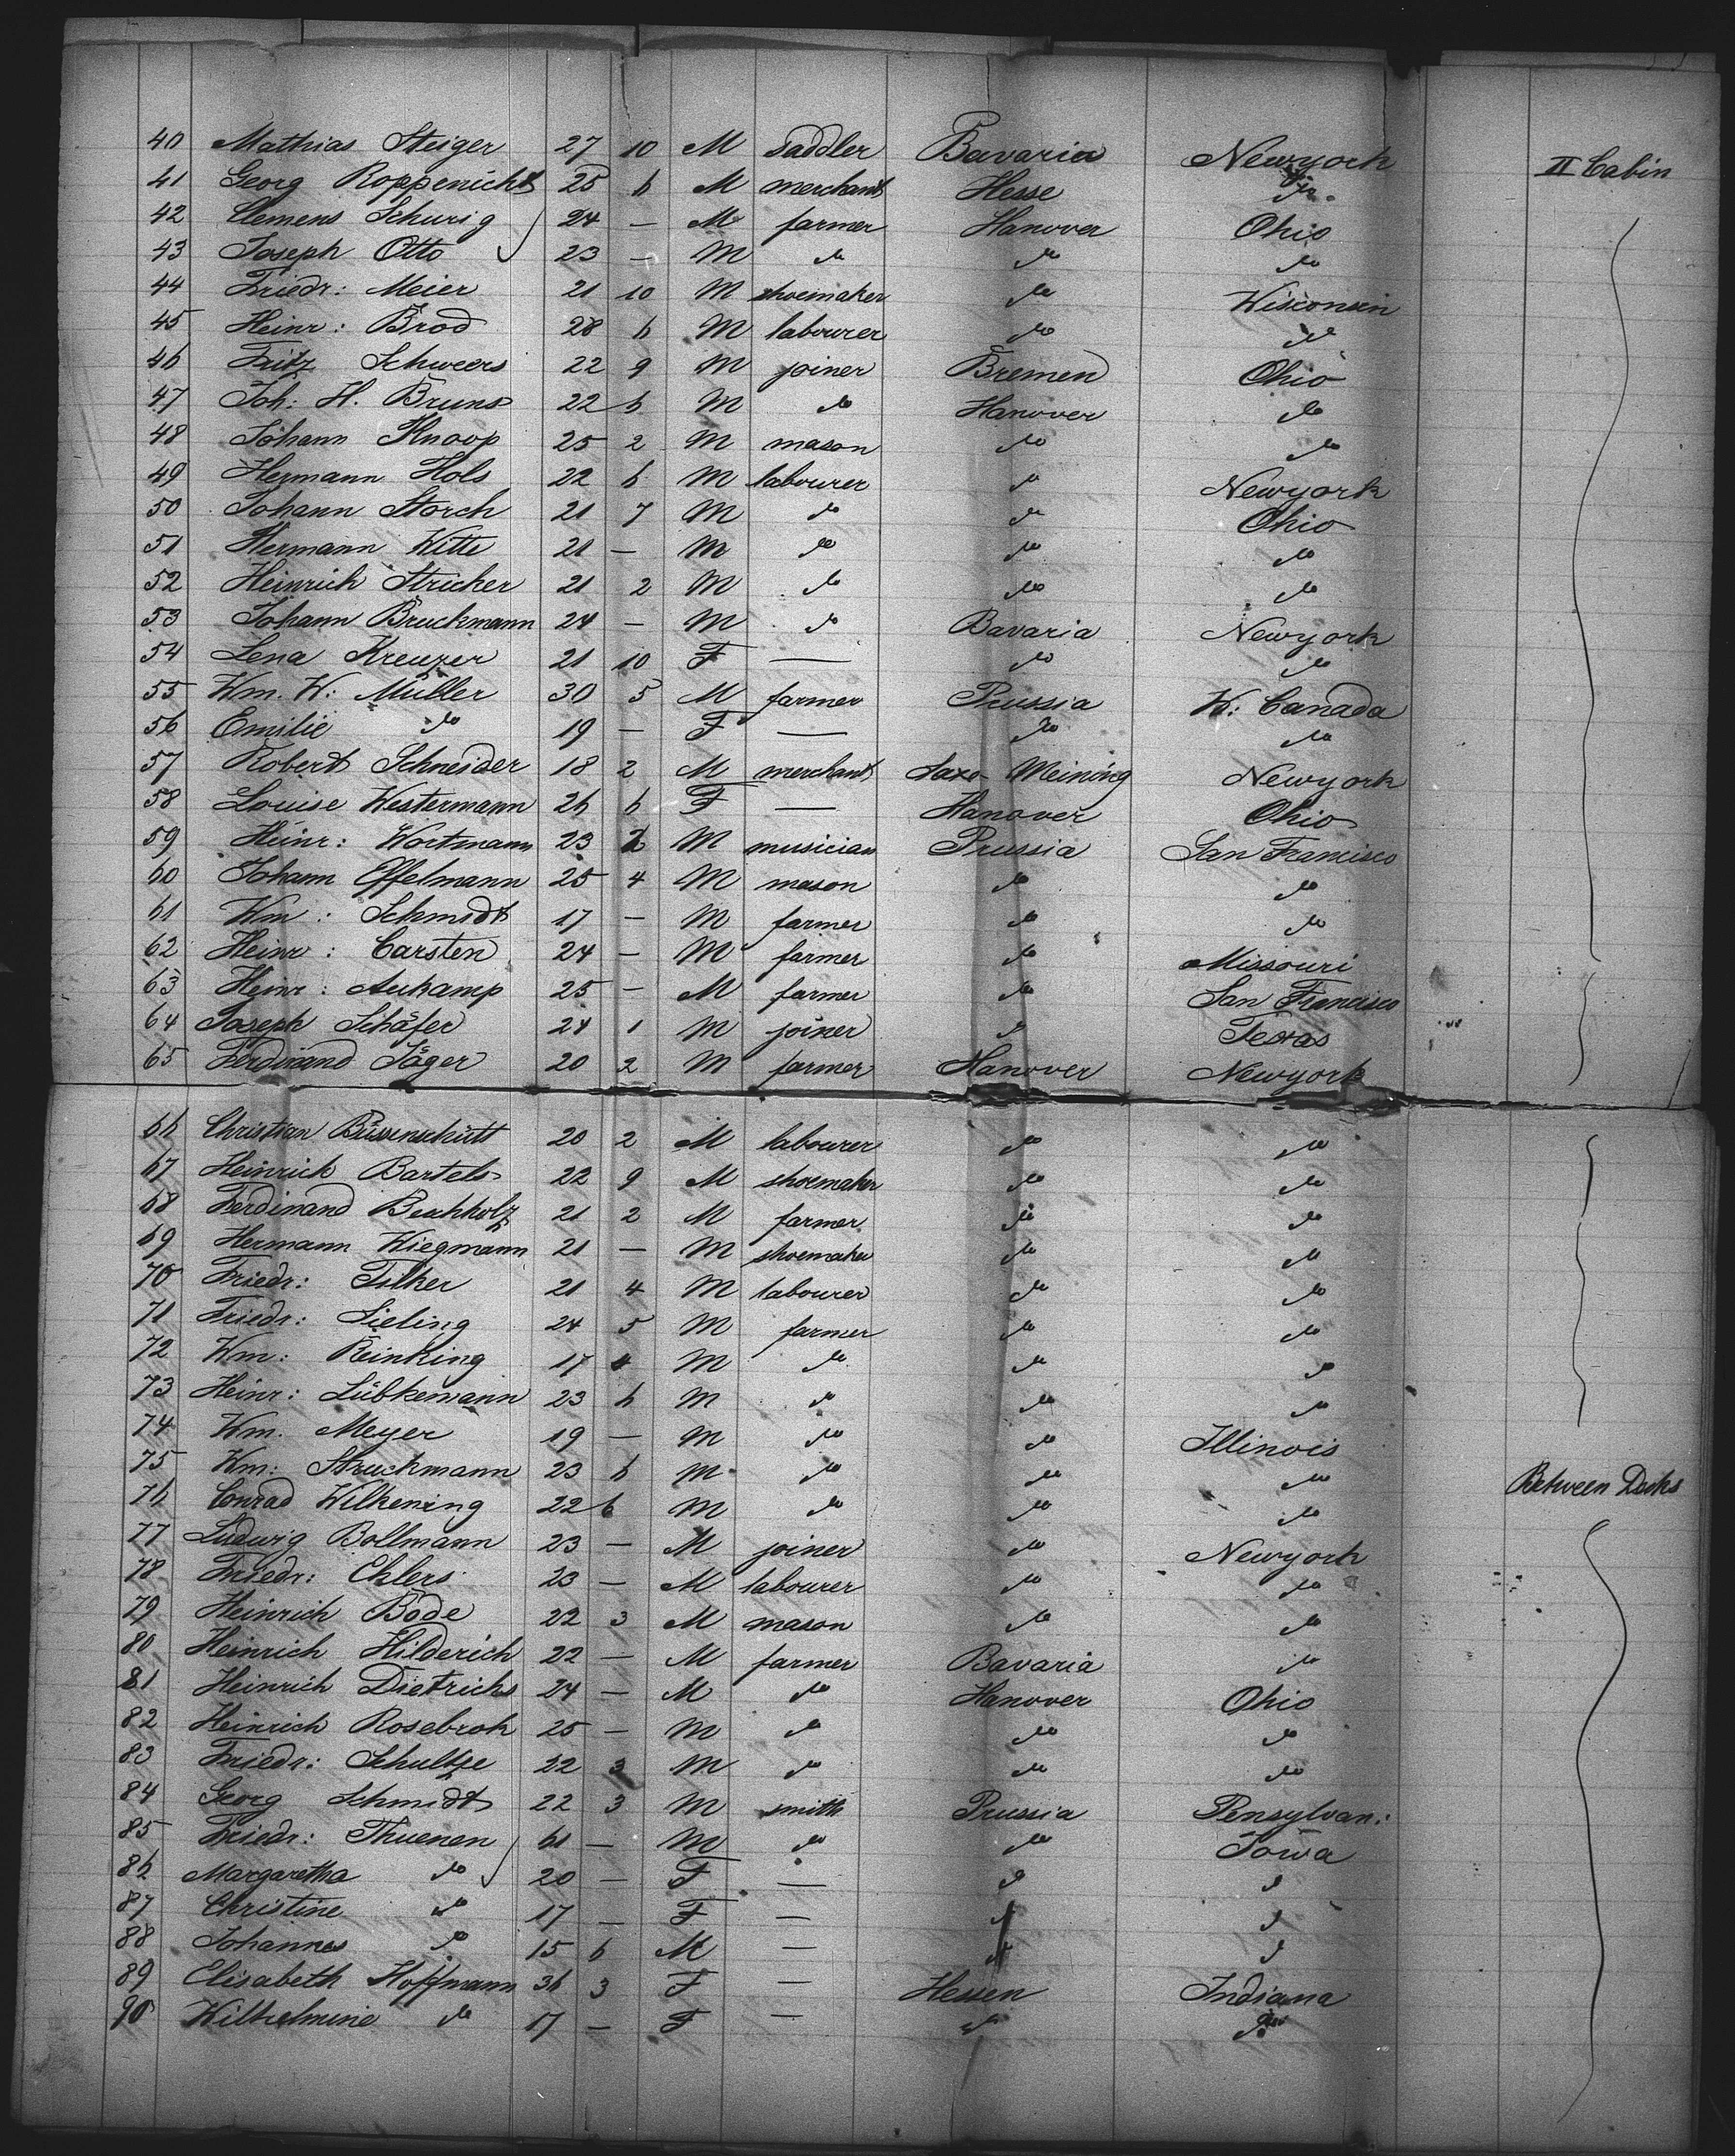 40 Mathias Steiger 27 10 M saddler Bavaria Newyork II Cabin
41 Georg Roppenicht 25 6 M merchant Hesse do
42 Clemens Schurig 24 — M farmer Hanover Ohio
43 Joseph Otto 23 — M do do do
44 Friedr: Meier 21 10 M shoemaker do Wisconsin
45 Heinr: Brod 28 6 M labourer do do
46 Fritz Schweers 22 9 M joiner Bremen Ohio
47 Joh: H. Bruns 22 6 M do Hanover do
48 Johann Knoop 25 2 M mason do do
49 Hermann Hols 22 6 M labourer do Newyork
50 Johann Storch 21 7 M do do Ohio
51 Hermann Witte 21 — M do do do
52 Heinrich Stricker 21 2 M do do do
53 Johann Bruckmann 24 — M do Bavaria Newyork
54 Lena Kreuzer 21 10 F — do do
55 Wm. W: Müller 30 5 M farmer Prussia W: Canada
56 Emilie do 19 — F — do do
57 Robert Schneider 18 2 M merchant Saxe-Meining Newyork
58 Louise Westermann 26 6 F — Hanover Ohio
59 Heinr: Wortmann 23 2 M musician Prussia San Francisco
60 Johann Effelmann 25 4 M mason do do
61 Wm: Schmidt 17 — M farmer do do
62 Heinr: Carsten 24 — M farmer do Missouri
63 Heinr: Aukamp 25 — M farmer do San Francisco
64 Joseph Schäfer 24 1 M joiner do Texas
65 Ferdinand Jäger 20 2 M farmer Hanover Newyork
66 Christian Büssenschütt 20 2 M labourer do do
67 Heinrich Bartels 22 9 M shoemaker do do
68 Ferdinand Buchholz 21 2 M farmer do do
69 Hermann Wiegmann 21 — M shoemaker do do
70 Friedr: Tilker 21 4 M labourer do do
71 Friedr: Lieling 24 5 M farmer do do
72 Wm: Reinking 17 4 M do do do
73 Heinr: Lübkemann 23 6 M do do do
74 Wm. Meyer 19 — M do do Illinois
75 Wm: Struckmann 23 6 M do do do Between Decks
76 Conrad Wilkening 22 6 M do do do
77 Ludwig Bollmann 23 — M joiner do Newyork
78 Friedr: Ehlers 23 — M labourer do do
79 Heinrich Bode 22 3 M mason do do
80 Heinrich Hilderich 22 — M farmer Bavaria do
81 Heinrich Dietrichs 24 — M do Hanover Ohio
82 Heinrich Rosebrok 25 — M do do do
83 Friedr: Schultze 22 3 M do do do
84 Georg Schmidt 22 3 M smith Prussia Pensylvan:
85 Friedr: Thuenen 61 — M do do Iowa
86 Margaretha do 20 — F — do do
87 Christine do 17 — F — do do
88 Johannes do 15 6 M — do do
89 Elisabeth Hoffmann 36 3 F — Hessen Indiana
90 Wilhelmine do 17 — F — do do